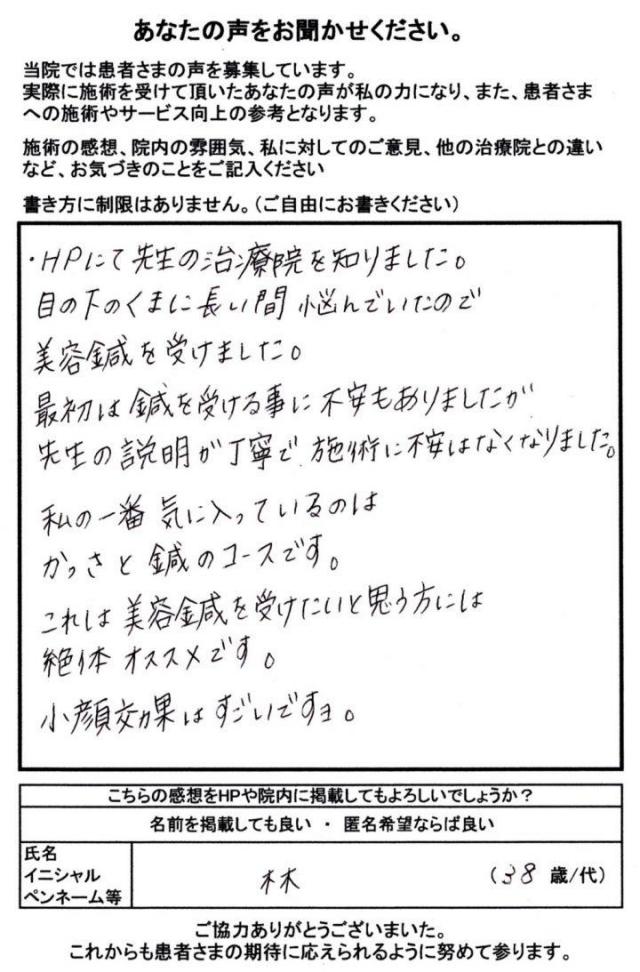 あなたの声をお聞かせください。
当院では患者さまの声を募集しています。
実際に施術を受けて頂いたあなたの声が私の力になり、また、患者さま
への施術やサービス向上の参考となります。
施術の感想、院内の雰囲気、私に対してのご意見、他の治療院との違い
など、お気づきのことをご記入ください
書き方に制限はありません。（ご自由にお書きください）
・HPにて先生の治療院を知りました。
目の下のくまに長い間 悩んでいたので
美容鍼を受けました。
最初は鍼を受ける事に不安もありましたが
先生の説明が丁寧で、施術に不安はなくなりました。
私の一番 気に入っているのは
かっさと鍼のコースです。
これは美容鍼を受けたいと思う方には
絶体オススメです。
小顔効果はすごいですヨ。
こちらの感想をHPや院内に掲載してもよろしいでしょうか？
名前を掲載しても良い ・ 匿名希望ならば良い
氏名
イニシャル
ペンネーム等
林 （38 歳/代）
ご協力ありがとうございまいた。
これからも患者さまの期待に応えられるように努めて参ります。